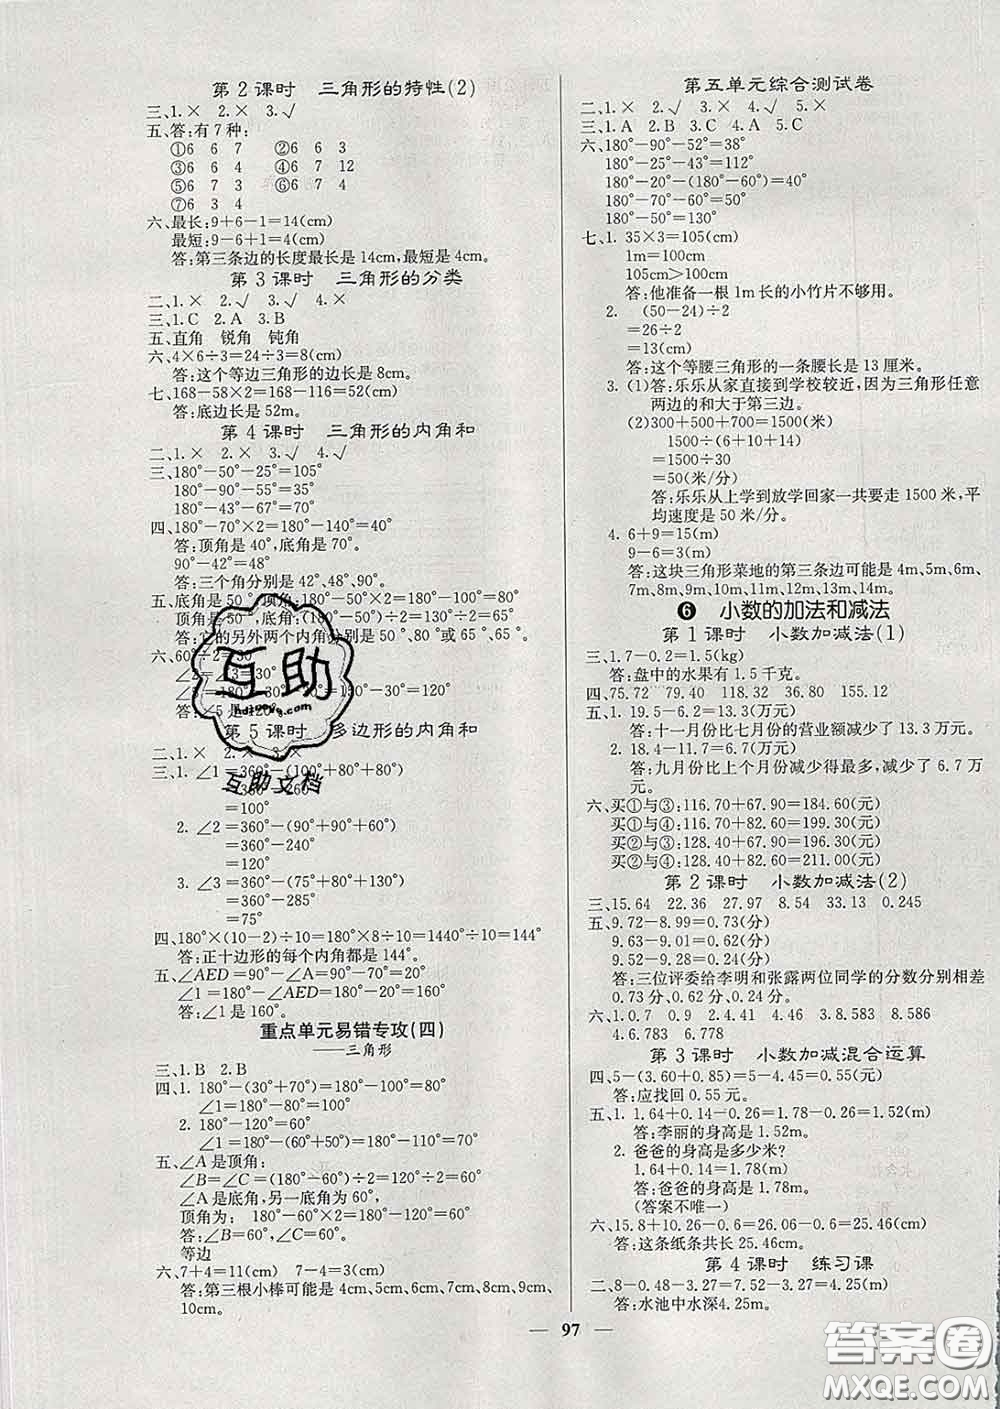 第2课时　三角形的特性(2)
三、1.×　2.×　3.√
五、答:有7种:
①6　6　7　　②6　6　3
③6　6　4　　④6　7　12
⑤6　7　3　　⑥6　7　4
⑦6　3　4
六、最长:9+6-1=14(cm)
最短:9-6+1=4(cm)
答:第三条边的长度最长是14cm,最短是4cm。
第3课时　三角形的分类
二、1.×　2.√　3.√　4.×
三、1.C　2.A　3.B
五、直角　锐角　钝角
六、4×6÷3=24÷3=8(cm)
答:这个等边三角形的边长是8cm。
七、168-58×2=168-116=52(cm)
答:底边长是52m。
第4课时　三角形的内角和
二、1.×　2.×　3.√　4.√
三、180°-50°-25°=105°
180°-90°-60°=30°
180°-43°-67°=70°
四、180°-70°×2=180°-140°=40°
答:顶角是40°,底角是70°。
90°-42°=48°
答:三个角分别是42°、48°、90°。
五、底角是50°,顶角:180°-50°×2=80°
底角:(180°-50°)÷2=65°
答:它的另外两个内角分别是50°、80°或65°、65°。
六、60°÷2=30°
180°-30°-30°=120°
答:∠5是120°。
第5课时　多边形的内角和
二、1.×　2.×　3.
三、1.∠1=360°-(100°+80°+80°)
=360°-260°
=100°
2.∠2=360°-(90°+90°+60°)
=360°-240°
=120°
3.∠3=360°-(75°+80°+130°)
=360°-285°
=75°
四、180°×(10-2)÷10=180°×8÷10=1440°÷10=144°
答:正十边形的每个内角都是144°。
五、∠AED=90°-∠A=90°-70°=20°
∠1=180°-∠AED=180°-20°=160°
答:∠1是160°。
重点单元易错专攻(四)
——三角形
三、1.B　2.B
四、1.180°-(30°+70°)=180°-100°=80°
∠1=180°-80°=100°
2.180°-120°=60°
∠1=180°-(60°+50°)=180°-110°=70°
五、∠A是顶角:
∠B=∠C=(180°-60°)÷2=120°÷2=60°
∠A是底角,另一底角为60°,
顶角为:180°-60°×2=180°-120°=60°
答:∠B=60°,∠C=60°。
等边
六、7+4=11(cm)　7-4=3(cm)
答:第三根小棒可能是4cm、5cm、6cm、7cm、8cm、9cm、
10cm。
第五单元综合测试卷
二、1.×　2.√　3.×　4.√　5.×
三、1.A　2.B　3.C　4.A　5.C
六、180°-90°-52°=38°
180°-25°-43°=112°
180°-20°-(180°-60°)=40°
180°-70°-60°=50°
180°-50°=130°
七、1.35×3=105(cm)
1m=100cm
105cm>100cm
答:他准备一根1m长的小竹片不够用。
2.(50-24)÷2
=26÷2
=13(cm)
答:这个等腰三角形的一条腰长是13厘米。
3.(1)答:乐乐从家直接到学校较近,因为三角形任意
两边的和大于第三边。
(2)300+500+700=1500(米)
1500÷(6+10+14)
=1500÷30
=50(米/分)
答:乐乐从上学到放学回家一共要走1500米,平
均速度是50米/分。
4.6+9=15(m)
9-6=3(m)
答:这块三角形菜地的第三条边可能是4m、5m、6m、
7m、8m、9m、10m、11m、12m、13m、14m。
❻　小数的加法和减法
第1课时　小数加减法(1)
三、1.7-0.2=1.5(kg)
答:盘中的水果有1.5千克。
四、75.72　79.40　118.32　36.80　155.12
五、1.19.5-6.2=13.3(万元)
答:十一月份比七月份的营业额减少了13.3万元。
2.18.4-11.7=6.7(万元)
答:九月份比上个月份减少得最多,减少了6.7万
元。
六、买①与③:116.70+67.90=184.60(元)
买①与④:116.70+82.60=199.30(元)
买②与③:128.40+67.90=196.30(元)
买②与④:128.40+82.60=211.00(元)
第2课时　小数加减法(2)
三、15.64　22.36　27.97　8.04　33.13　0.245
五、9.72-8.99=0.73(分)
9.63-9.01=0.62(分)
9.52-9.28=0.24(分)
答:三位评委给李明和张露两位同学的分数分别相差
0.73分、0.62分、0.24分。
六、1.0.7　0.9　2.4.41　4.46　3.8.584　8.587
4.6.783　6.778
第3课时　小数加减混合运算
四、5-(3.60+0.85)=5-4.45=0.55(元)
答:应找回0.55元。
五、1.1.64+0.14-0.26=1.78-0.26=1.52(m)
答:李丽的身高是1.52m。
2.爸爸的身高是多少米?
1.64+0.14=1.78(m)
答:爸爸的身高是1.78m。
(答案不唯一)
六、15.8+10.26-0.6=26.06-0.6=25.46(cm)
答:这条纸条共长25.46cm。
第4课时　练习课
二、8-0.48-3.27=7.52-3.27=4.25(m)
答:水池中水深4.25m。
— 97 —
互助
互助文档
答案圈
MXQE.COM